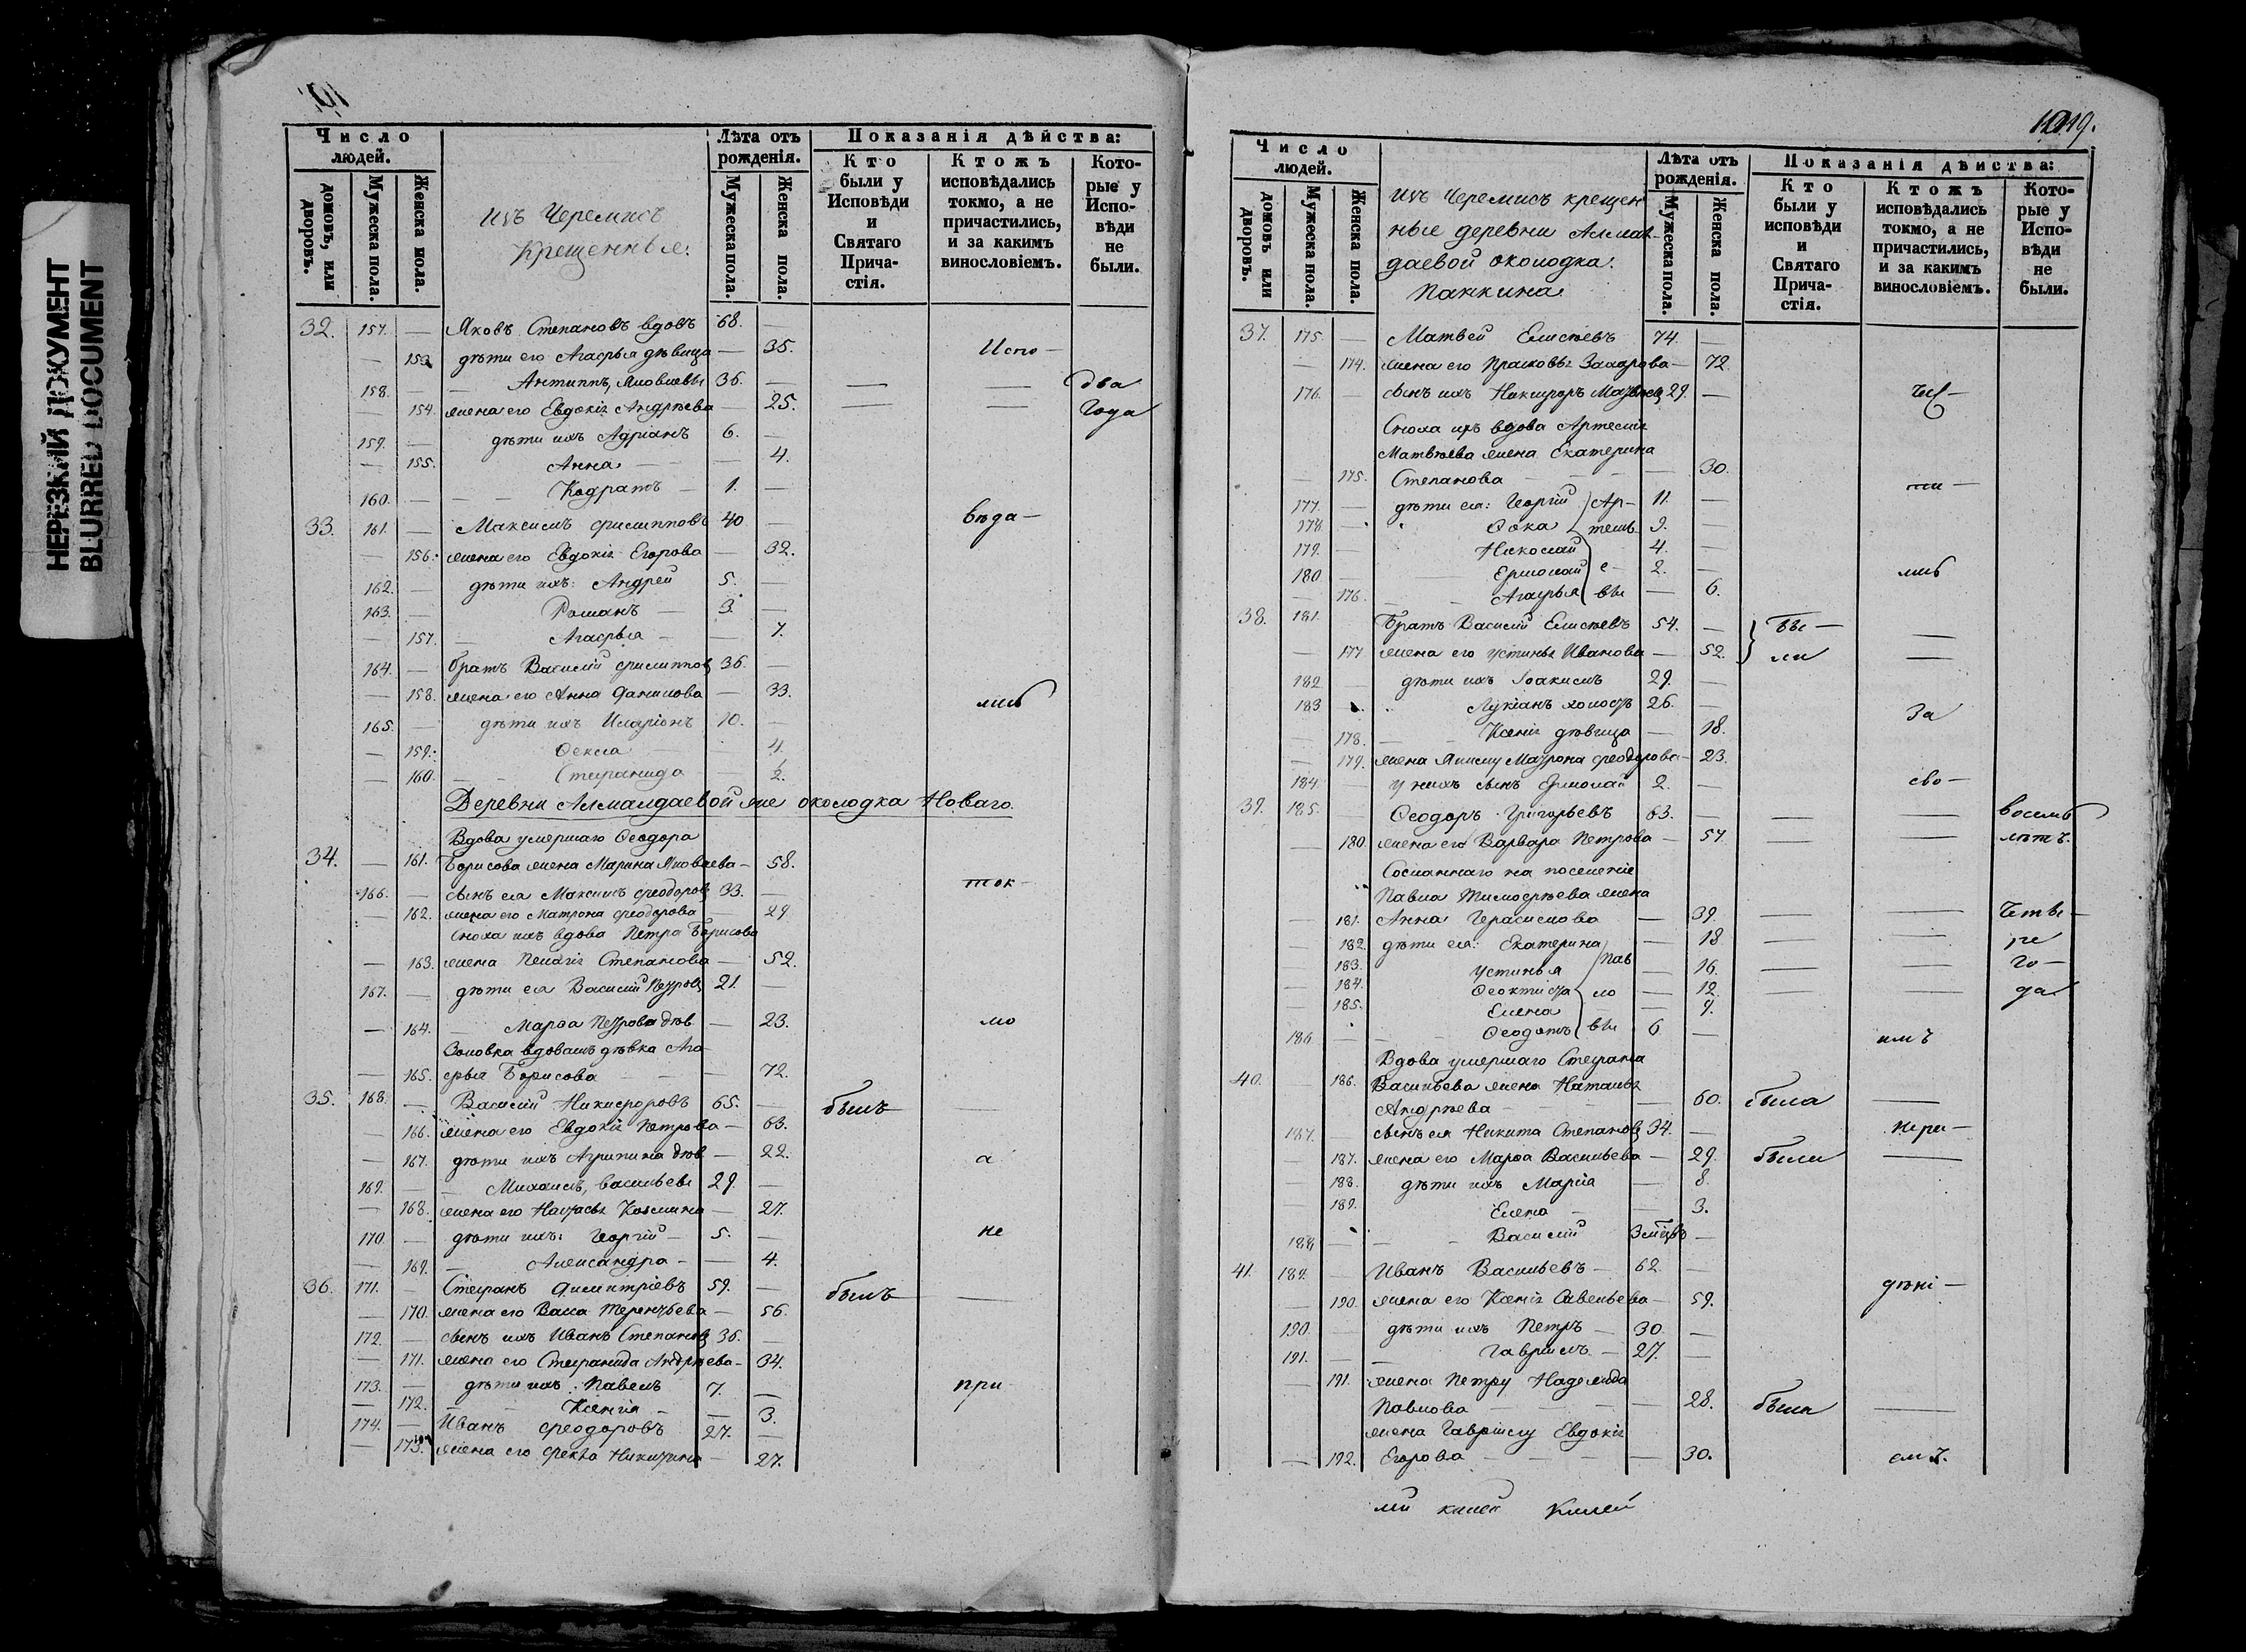 НЕРЕЗКИЙ ДОКУМЕНТ
BLURRED DOCUMENT
Число людей.
домовъ, или дворовъ.
Мужеска пола.
Женска пола.
Изъ Черемисъ
Крещенные.
Лѣта отъ рожденія.
Мужеска пола.
Женска пола.
Показанія дѣйства:
Кто были у Исповѣди и Святаго Причастія.
Ктожъ исповѣдались токмо, а не причастились, и за какимъ винословіемъ.
Которые у Исповѣди не были.
32. 157. — Яковъ Степановъ вдовъ 68. —
— 153. дѣти его Агафья дѣвица — 35. Испо—
158. — Антиппъ, Яковлевы 36. — — — два
— 154. жена его Евдокія Андрѣева — 25. — — года
159. — дѣти ихъ Адріанъ 6. —
— 155. Анна — — 4.
160. — — Кодратъ — 1. —
33. 161. — Максимъ Филипповъ 40 — вѣда—
— 156. жена его Евдокія Егорова — 32.
162. — дѣти ихъ: Андрей 5. —
163. — Романъ — 3. —
— 157. — Агафья — — 7.
164. — братъ Василій Филиппов 36. —
— 158. жена его Анна Данилова — 33. лись
165. — дѣти ихъ Иларіонъ 10. —
— 159. Ѳекла — — 4.
— 160. — Стефанида — ½.
Деревни Алмалдаевой же околодка Новаго.
Вдова умершаго Ѳеодора
34. — 161. Борисова жена Марина Яковлева — 58.
166. — сынъ ея Максимъ Феодоров 33. — ток—
— 162. жена его Матрона Феодорова — 29
Сноха ихъ вдова Петра Борисова
— 163. жена Пелагія Степанова — 52.
167. — дѣти ея Василій Петров 21. —
— 164. — Марѳа Петрова дѣв — 23. мо
Золовка вдовамъ дѣвка Ага-
— 165. фья Борисова — — — 72.
35. 168. — Василій Никифоровъ 65. — былъ —
— 166. жена его Евдокія Петрова — 63.
— 167. дѣти ихъ Агрипина дѣв — 22. а
169. — — Михаилъ, Васильевы 29. —
— 168. жена его Настасья Козмина — 27.
170. — дѣти ихъ: Георгій — 5. — не
— 169. — Александра — — 4.
36. 171. — Стефанъ Димитріевъ 59. — былъ —
— 170. жена его Васса Терентьева — 56.
172. — сынъ ихъ Иванъ Степанов 36. —
— 171. жена его Стефанида Андрѣева — 34.
173. — дѣти ихъ: Павелъ 7. — при
— 172. — — Ксенія — — 3.
174. — Иванъ Феодоровъ 27. —
— 173. жена его Фекла Никитина — 27.
Число людей.
домовъ или дворовъ.
Мужеска пола.
Женска пола.
Изъ Черемисъ крещен
ные деревни Алмал-
даевой околодка.
Панкина
Лѣта отъ рожденія.
Мужеска пола.
Женска пола.
Показанія дѣйства:
Кто были у исповѣди и Святаго Причастія.
Ктожъ исповѣдались токмо, а не причастились, и за какимъ винословіемъ.
Которые у Исповѣди не были.
37. 175. — Матвей Елисѣевъ 74. —
— 174. жена его Прасковья — 72.
176. — сынъ ихъ Никифоръ 29. —
Сноха ихъ вдова Артемія
Матвѣева жена Екатерина
175. Степанова — — — 30.
177. — дѣти ея: Георгій Ар— 11. —
178. — Ѳока теmь 9. —
179. — Николай 4. —
180. — Ермолай е— 2. —
— 176. — Агафья вы — 6.
38. 181. Братъ Василій Елисѣевъ 54. — бы— —
— 177 жена его Устинья Иванова — 52. ли —
182 — дѣти ихъ Іоакимъ 29. —
183 Лукіанъ холостъ 26. — За
— 178. — Ксенія дѣвица — 18.
— 179. жена Якиму Матрона Феодорова — 23.
184. — у нихъ сынъ Ермолай 2. — сво—
39. 185. — Ѳеодоръ Григорьевъ 63. — — — восемь
— 180. жена его Варвара Петрова — 57 — — лѣтъ.
Сосланнаго на поселеніе
Павла Тимофѣева жена
— 181. Анна Герасимова — 39. — — Четы—
— 182. дѣти ея: Екатерина — 18 — — ре
— 183. Устинья Пав — 16. — — го—
— 184. Ѳеоктиста ло — 12. — — да
— 185. Елена — 9.
186. — Ѳеодотъ вы 6 — имъ
Вдова умершаго Стефана
40. — 186. Васильева жена Наталья
Андрѣева — — — 60. была —
187. — сынъ ея Никита Степанов 34. — нера—
— 187. жена его Марѳа Васильева — 29. были —
— 188. дѣти ихъ Марія — 8.
— 189. Елена — — 3.
188. — — Василій 3 мѣсѣ —
41. 189. — Иванъ Васильевъ — 62. — дѣні—
— 190. жена его Ксенія Савельева — 59.
190. — дѣти ихъ Петръ — 30 —
191. — — Гавріилъ — 27. —
— 191. жена Петру Надежда
Павлова — — — 28. была —
жена Гавріилу Евдокія
— 192. Егорова — — — 30. емъ.